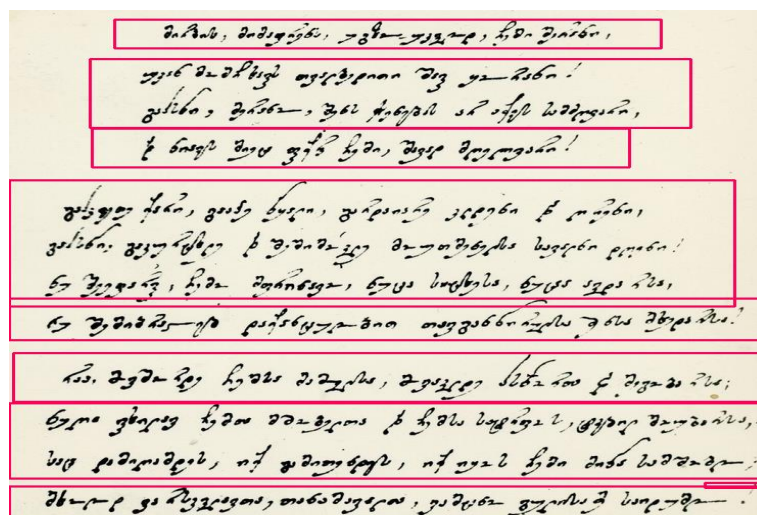 მირბის, მიმაფრენს, უგზო-უკვლოდ, ჩემი მერანი,
უკან მომჩხავს თვალბედითი შავი ყორანი!
გასწი, მერანო, შენს ჭენებას არ აქვს სამძღვარი,
და ნიავს მიეც ფიქრი ჩემი, შავად მღელვარი!
გაჰკვეთე ქარი, გააპე წყალი, გარდაიარე კლდენი და ღრენი,
გასწი, გაკურცხლე და შემიმოკლე მოუთმენელსა სავალნი დღენი!
ნუ შეეფარვი, ჩემო მფრინავო, ნუცა სიცხესა, ნუცა ავდარსა,
ნუ შემიბრალებ დაქანცულობით თავგანწირულსა შენსა მხედარსა!
რაა, მოვშორდე ჩემსა მამულსა, მოვაკლდე სწორთა და მეგობარსა;
ნუღა ვიხილავ ჩემთა მშობელთა და ჩემსა სატრფოს, ტკბილ მოუბარსა,
საც დამიღამდეს, იქ გამითენდეს, იქ იყოს ჩემი მიწა სამშობლო;
მხოლოდ ვარსკვლავთა, თანამავალთა, ვამცნო გულისა მე საიდუმლო!